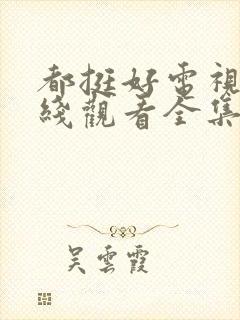 都挺好电視
綫觀看全集
吴雲霞